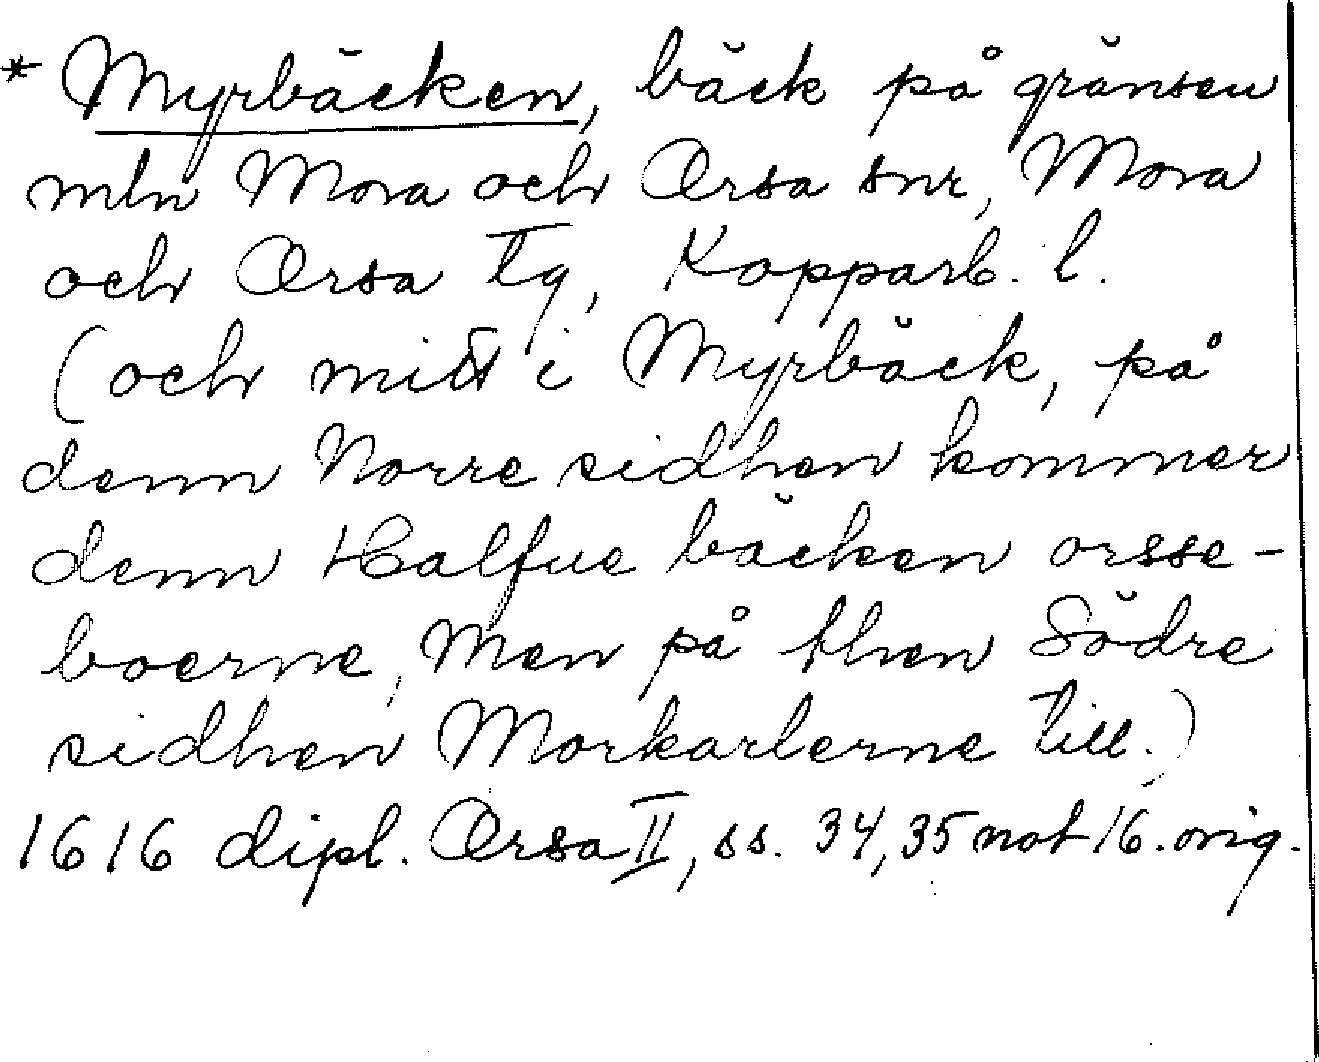 * Myrbäcken, bäck på gränsen
mln Mora och Orsa snr, Mora
och Orsa tg, Kopparb. l.
(och mitt i Myrbäck, på
denn Norre sidhen kommer
denn Halfue bäcken orsse-
boerne, Men på then Södre
sidhen Morkarlerne till.)
1616 dipl. Orsa II, ss. 34, 35 not 16. orig.